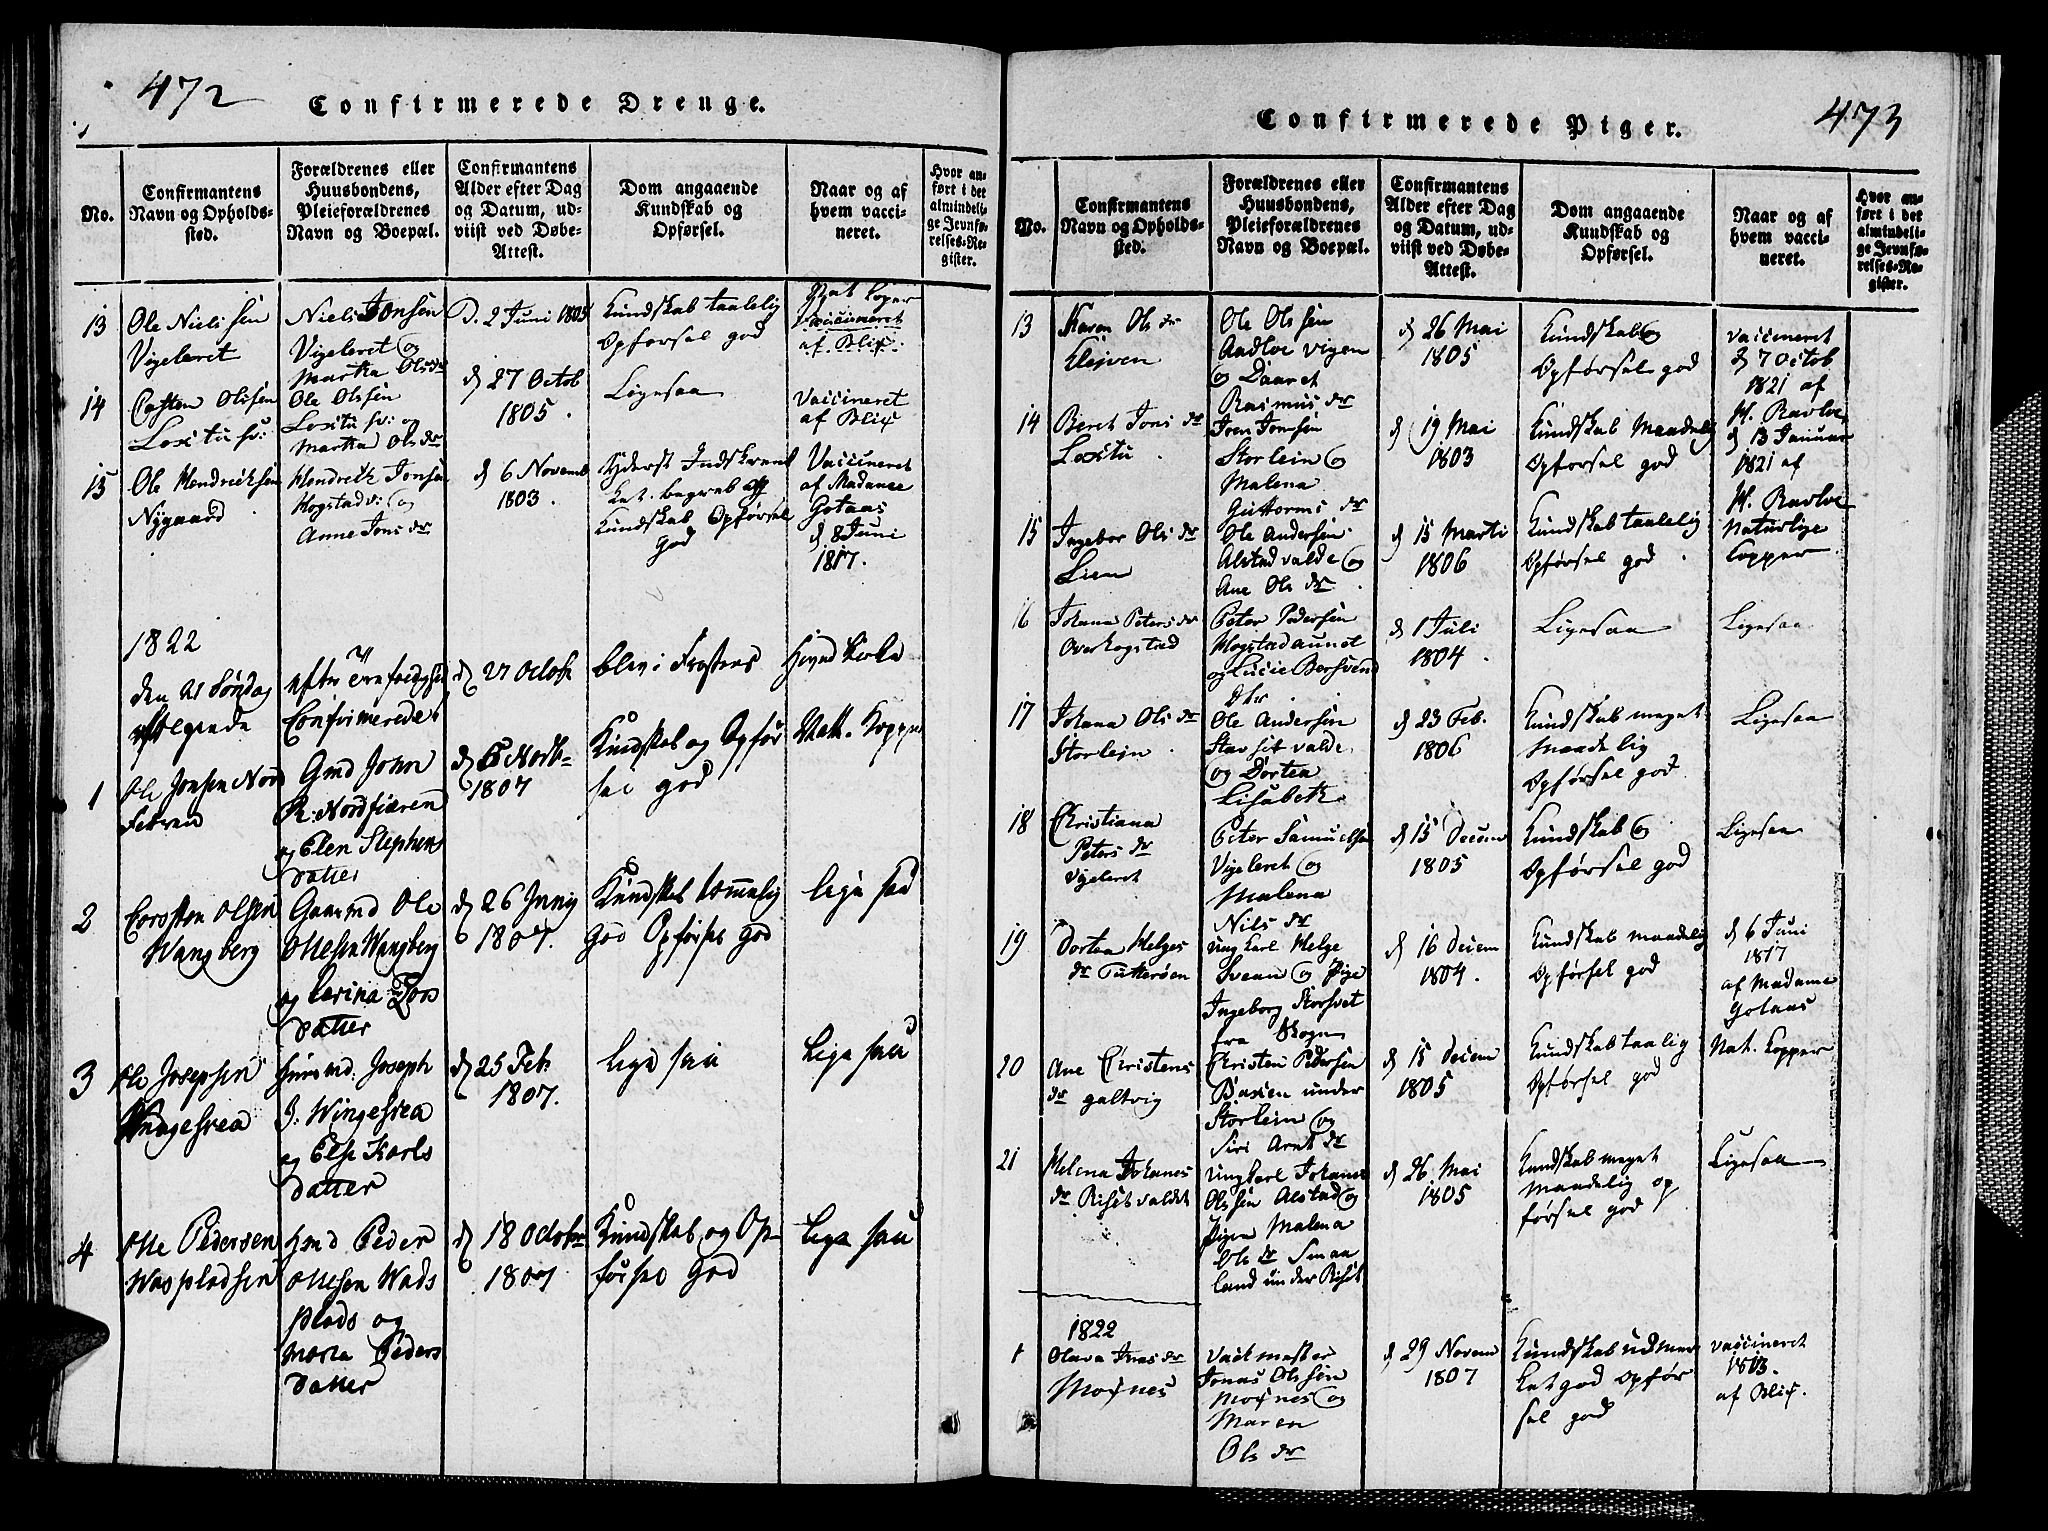 472
Confirmerede Drenge.
No.
Confirmantens
Navn og Opholds-
sted.
Forældrenes eller
Huusbondens,
Pleieforældrenes
Navn og Boepæl.
Confirmantens
Alder efter Dag
og Datum, ud-
viist ved Døbe-
Attest.
Dom angaaende
Kundskab og
Opførsel.
Naar og af
hvem vacci-
neret.
Hvor an-
ført i det
almindeli-
ge Jevnfø-
relses-Re-
gister.
13
Ole Nielssen
Vigeleret
Niels Jonsen
Vigeleret og
Martha Olsdr
D. 2 Juni 1805
Kundskab taalelig
Opførsel god
Nat Coper
Vaccineret
af Blix
14
Carsten Olssen
Loxitu
Ole Olssen
Loxitu og
Martha Ols dr
d 27 Octob
1805.
Ligesaa
Vaccineret
af Blix
15
Ole Hendriksen
Nygaard
Hendrik Jonsen
Hogstad og
Anne Jons dr
d 6 Novemb
1803.
Yderst Indskræn
ket begreb og
Kundskab Opførsel
God
Vaccineret
af Madame
Gotaas
d 8 Juni
1817.
1822
den 21 Søndag efter Trinfoldighed d 27 Octobr blev i Frostens Kirke
efterfølgende Confirmerede:
1
Ole Jonsen Nord
Fieren
Gmd John
R: Nordfiæren
og Elen Stephens
Datter
1807
Kundskab og Opfør
sel god
Natt. Kopper
2
Corsten Olsen
Wangberg
Gaarmd Ole
Ollesen Wangberg
og Carina Tors
Datter
d 26 Juny
1807.
Kundskab temmelig
God Opførsel God
lige saa
3
Ole Josephsen
Wingesrea
Huusmd. Joseph
J. Wingesrea
og Else Karls
Datter
d 25 Feb
1807.
lige saa
Lige saa
4
Olle Pedersen
Waspladsen
Gmd Peder
Ollesen Wads
plads og
Maria Peders
Datter
d 18 Octobr
1807
Kundskab og Op
førsel God
Lige saa
473
Confirmerede Piger.
No.
Confirmantens
Navn og Opholds-
sted.
Forældrenes eller
Huusbondens,
Pleieforældrenes
Navn og Boepæl.
Confirmantens
Alder efter Dag
og Datum, ud-
viist ved Døbe-
Attest.
Dom angaaende
Kundskab og
Opførsel.
Naar og af
hvem vacci-
neret.
Hvor an-
ført i det
almindeli-
ge Jevnfø-
relses-Re-
gister.
13
Karen Ols dr
Klejven
Ole Olssen
Aadloe vigen
og Daaret
Rasmus dr
d 26 Mai
1805
Kundskab og
Opførsel god
vaccineret
d 7 Octob
1821 af
H. Ravloe
14
Beret Jons dr
Loxitu
Joen Jonssen
Storlein og
Malena
Guttorms dr
d 19 Mai
1803
Kundskab Maadelig
Opførsel god
d 13 Januar
1821 af
H. Ravloe
15
Ingebor Ols dr
Lien
Ole Andersen
Alstad valde og
Ane Ols dr
d 15 Marti
1806
Kundskab taalelig
Opførsel god
Naturlige
Copper
16
Johana Peters dr
Overhogstad
Peter Pedersen
Hogstadaunet
og Lucie Bersvend
dtr
d 1 Juli
1804.
Ligesaa
Ligesaa
17
Johana Ols dr
Storlein
Ole Andersen
Stavset valde
og Dorten
Lisabeth
d 23 Feb.
1806
Kundskab meget
Maadelig
Opførsel god
Ligesaa
18
Christiana
Peters dr
Vigeleret
Peter Samuelsen
Vigeleret og
Malena
Nils dr
d 15 Decem
1805
Kundskab og
Opførsel god
Ligesaa
19
Dortea Helges
dr Tutterøen
Ungkarl Helge
Svean og Pige
Ingeborg Storsvet
fra Skogn
d 16 Decem
1804.
Kundskab maadelig
Opførsel god
d 6 Juni
1817
af Madame
Gotaas
20
Ane Christens
dr galtvig
Christen Pedersen
Baxien under
Storlein og
Siri Arnt dr
d 15 Decem
1805
Kundskab taalig
Opførsel god
Nat. Kopper
21
Helena Johanes
dr Risetvaldet
Ungkarl Johanes
Olssen Alstad og
Pigen Malena
Ols dr Smaa
land under Riset
d 26 Mai
1805
Kundskab meget
maadelig op
førsel god
Ligesaa
1822
1
Olava Jonas dr
Moxnes
Vactmester
Jonas Olssen
Moxnes og
Maren
Ols dr
d 29 Novem
1807
Kundskab udmær
ket god Opfør
sel god
vaccineret
1813.
af Blix.